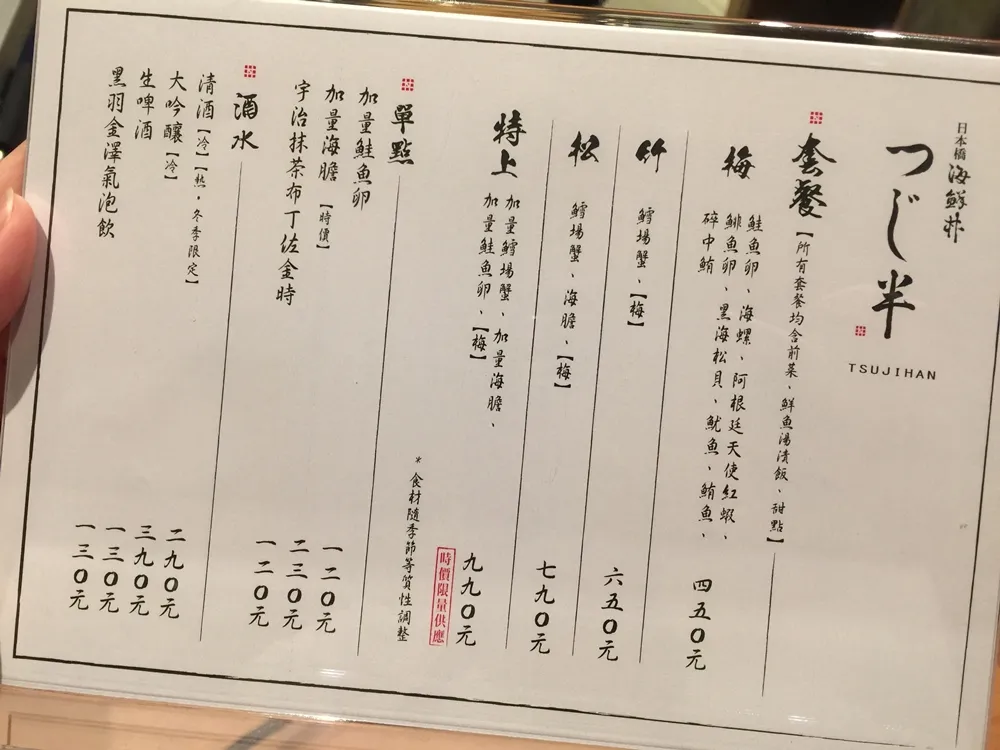 日本橋 海鮮丼
つじ半
TSUJIHAN
套餐【所有套餐均含前菜、鮮魚湯漬飯、甜點】
梅
鮭魚卵、海螺、阿根廷天使紅蝦、
鯡魚卵、黑海松貝、魷魚、鮪魚、
碎中鮪
四五0元
竹 鱈場蟹、【梅】
六五0元
松 鱈場蟹、海膽、【梅】
七九0元
特上 加量鱈場蟹、加量海膽、
加量鮭魚卵、【梅】
九九0元
時價限量供應
*食材隨季節等質性調整
單點
加量鮭魚卵 一二0元
加量海膽【時價】 二三0元
宇治抹茶布丁佐金時 一二0元
酒水
清酒【冷】【熱，冬季限定】 二九0元
大吟釀【冷】 三九0元
生啤酒 一三0元
黑羽金澤氣泡飲 一三0元